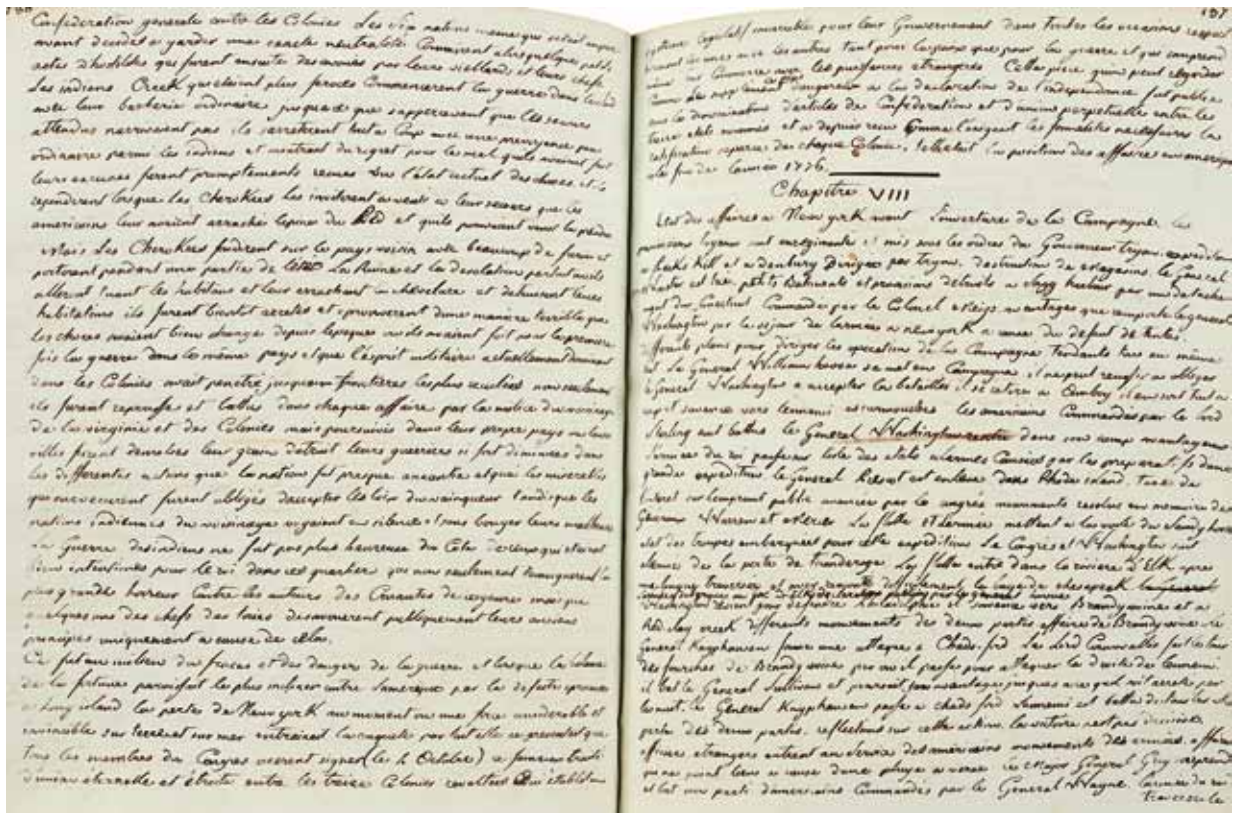 Confédération generale entre les Colonies Les Six nations
avant decidés a garder une exacte neutralité Commirent alors quelques petits
actes d'hostilités qui furent ensuite desavoués par leurs vieillards et leurs chefs
Les indiens Creek qui etaient plus feroces Commencerent la guerre dans
avec leur barbarie ordinaire jusqua ce que sappercevant que les secours
attendus narrivaient pas ils sarreterent tout a Coup avec une prevoyance peu
ordinaire parmi les indiens et montrant du regret pour le mal quils avaient fait
leurs excuses furent promptements recues sur l'état actuel des choses, et ils
repondirent lorsque les Cherokees les inviterent a venir a leur secours que les
americains leur avaient arraché lepine du Pied et quils pouvaient
Mais Les Cherokees fondirent sur le pays voisin avec beaucoup de fureur et
porterent pendant une partie de lété La Ruine et la Desolation partout ou ils
allerent tuant les habitans et leur arrachant la chevelure et detruisant leurs
habitations ils furent bientot arretés et eprouverent dune maniere terrible que
les choses avaient bien changé depuis lepoque ou ils avaient fait pour la premiere
fois la guerre dans le même pays et que l'esprit militaire actuellement dominant
dans les Colonies avait penetré jusquaux frontieres les plus reculées non seulement
ils furent repoussés et battus dans chaque affaire par la milice du voisinage
de la virginie et des Colonies mais poursuivis dans leur propre pays ou leurs
villes furent demolies leur grain detruit leurs guerriers si fort diminués dans
les differentes actions que la nation fut presque aneantie et que les miserables
qui survecurent furent obligés daccepter les loix du vainqueur tandis que les
nations indiennes du voisinage voyaient en silence et sans bouger leurs malheurs
La Guerre des indiens ne fut pas plus heureuse du Coté de ceux qui etaient
bien intentionnés pour le roi dans ces quartiers qui non seulement temoignerent la
plus grande horreur Contre les auteurs des Cruautés de ce genre mais que
quelques uns des chefs des toris desavouerent publiquement leurs anciens
principes uniquement a cause de cela.
Ce fut au milieu du fracas et des dangers de la guerre et lorsque la balance
de la fortune paroissait le plus incliner contre lamerique par la defaite eprouvée
a Long island la perte de New york au moment ou une force considerable et
invincible sur terre et sur mer entrainait la conquete par tout elle se presentait que
tous les membres du Congres vierent signer (les 4 Octobre) ce fameux traité
d'union eternelle et étroite entre les treize Colonies revoltées Qui etablit un
157
systeme legislatif invariable pour leur Gouvernement dans toutes les occasions
les unes avec les autres tant pour la paix que pour la guerre et qui comprend
aussi leur Commerce avec les puissances etrangeres Cette piece quon peut regarder
comme un supplement dangereux a la declaration de lindependence fut publiée
sous la denomination d'articles de Confederation et d'union perpetuelle entre les
treize etats nommés et a depuis recu Comme lexigent les formalités necessaires la
ratification separée de chaque Colonie. telle etait la position des affaires en amerique
a la fin de lannée 1776.
Chapitre VIII
Etat des affaires a New york avant l'ouverture de la Campagne les
provinces loyaux sont enregimentés et mis sous les ordres du Gouverneur tryon. expedition
a Peeks Kill et a Danbury Dirigée par tryon. destruction de magasins. le General
Wooster est tué petits Batiments et provisions detruits a Sagg harbour par un detache
ment du Continent Commandés par le Colonel Meigs. avantages que remporte le general
Washington par le sejour de larmée a new york a cause du defaut de tentes.
differents plans pour diriger les operations de la Campagne tendants tous au même
but Le General William howe se met en Campagne il ne peut reussir a obliger
le General Washington a accepter la bataille il se retire a Amboy il en sort tout a
coup et savance vers lennemi escarmouches les americains Commandés par le lord
Sterling sont battus le General Washington rentre dans son camp avantageux
larmée du roi passe sur lisle des etats alarmes Causées par les preparatifs dune
grande expedition le General Prescot est enlevé dans Rhode island. taxe de
sur lemprunt public avancée par le congrés monuments resolus en memoire des
Generaux Warren et Mercer La flotte et larmée mettent a la voile de Sandy hook
etat des troupes embarquées pour cette expedition Le Congrés et Washington sont
de la perte de ticonderoga La flotte entre dans la riviere d'Elk apres
une longue traversée la baye de chesapeak le General
Washington revient pour defendre Philadelphie et savance vers Brandywine et a
Red clay creek differents mouvements des deux partis affaire de Brandywine le
General Knyphausen forme une attaque a Chads ford Le Lord Cornwallis fait le tour
des fourches de Brandywine par ou il passe pour attaquer la droite de lennemi
il bat le General Sullivan et poursuit son avantage jusques a ce quil soit arreté par
la nuit. Le General Knyphausen passe a chads ford lennemi est battu de tous les cotés
perte des deux partis. reflections sur cette action. la victoire nest pas decisive
officiers etrangers entrent au service des americains mouvements des armées. affaire
qui na point lieu a cause dune pluye a verse le Major General Grey surprend
et bat un parti d'americains Commandés par le General Wayne. larmée du roi
traverse la